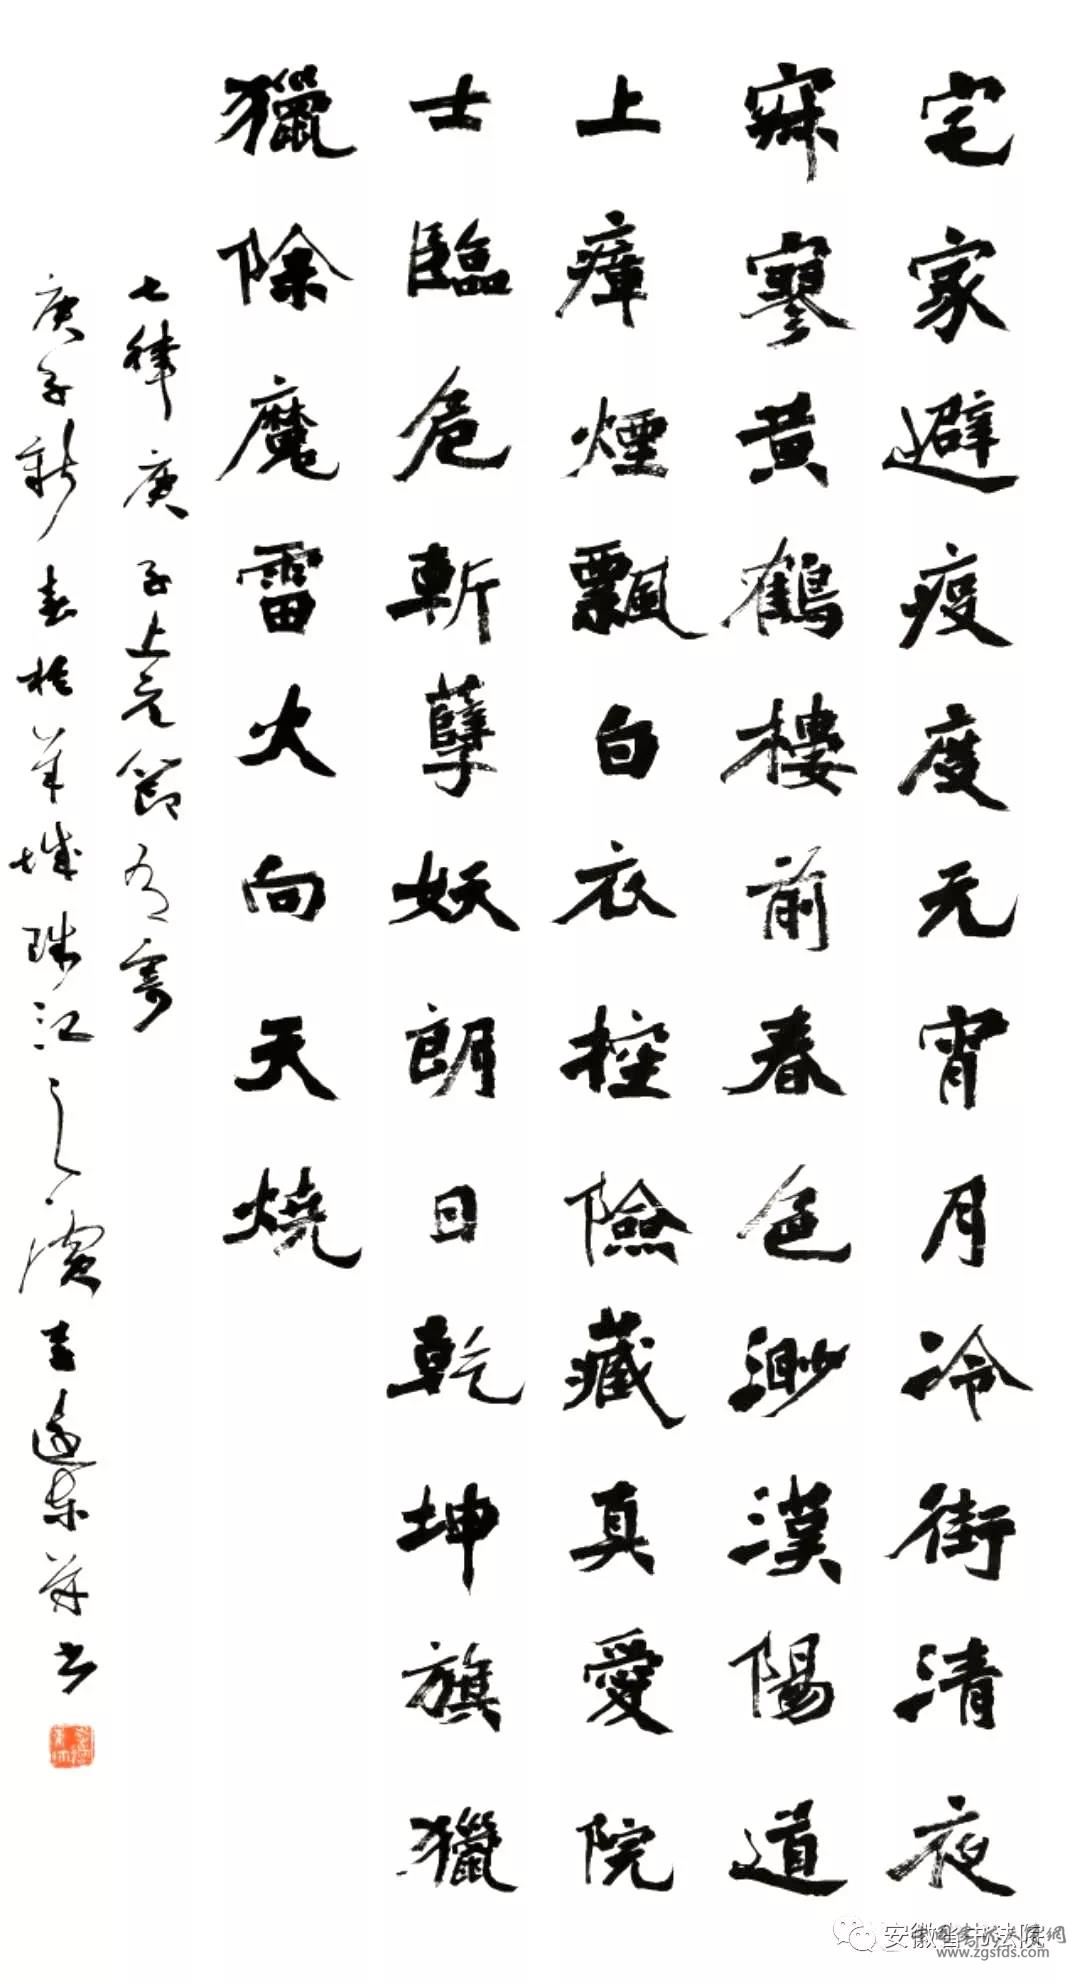 宅家避疫度元宵月冷街清夜
寂寥黄鶴樓前春色渺漢陽道
上瘴煙飄白衣控險藏真愛院
士臨危斬孽妖朗日乾坤旗獵
獵除魔雷火向天燒
七律庚子上元節有寄
庚子新春於羊城珠江之濱李遠東并书
安徽省书法院
www.zgsfds.com